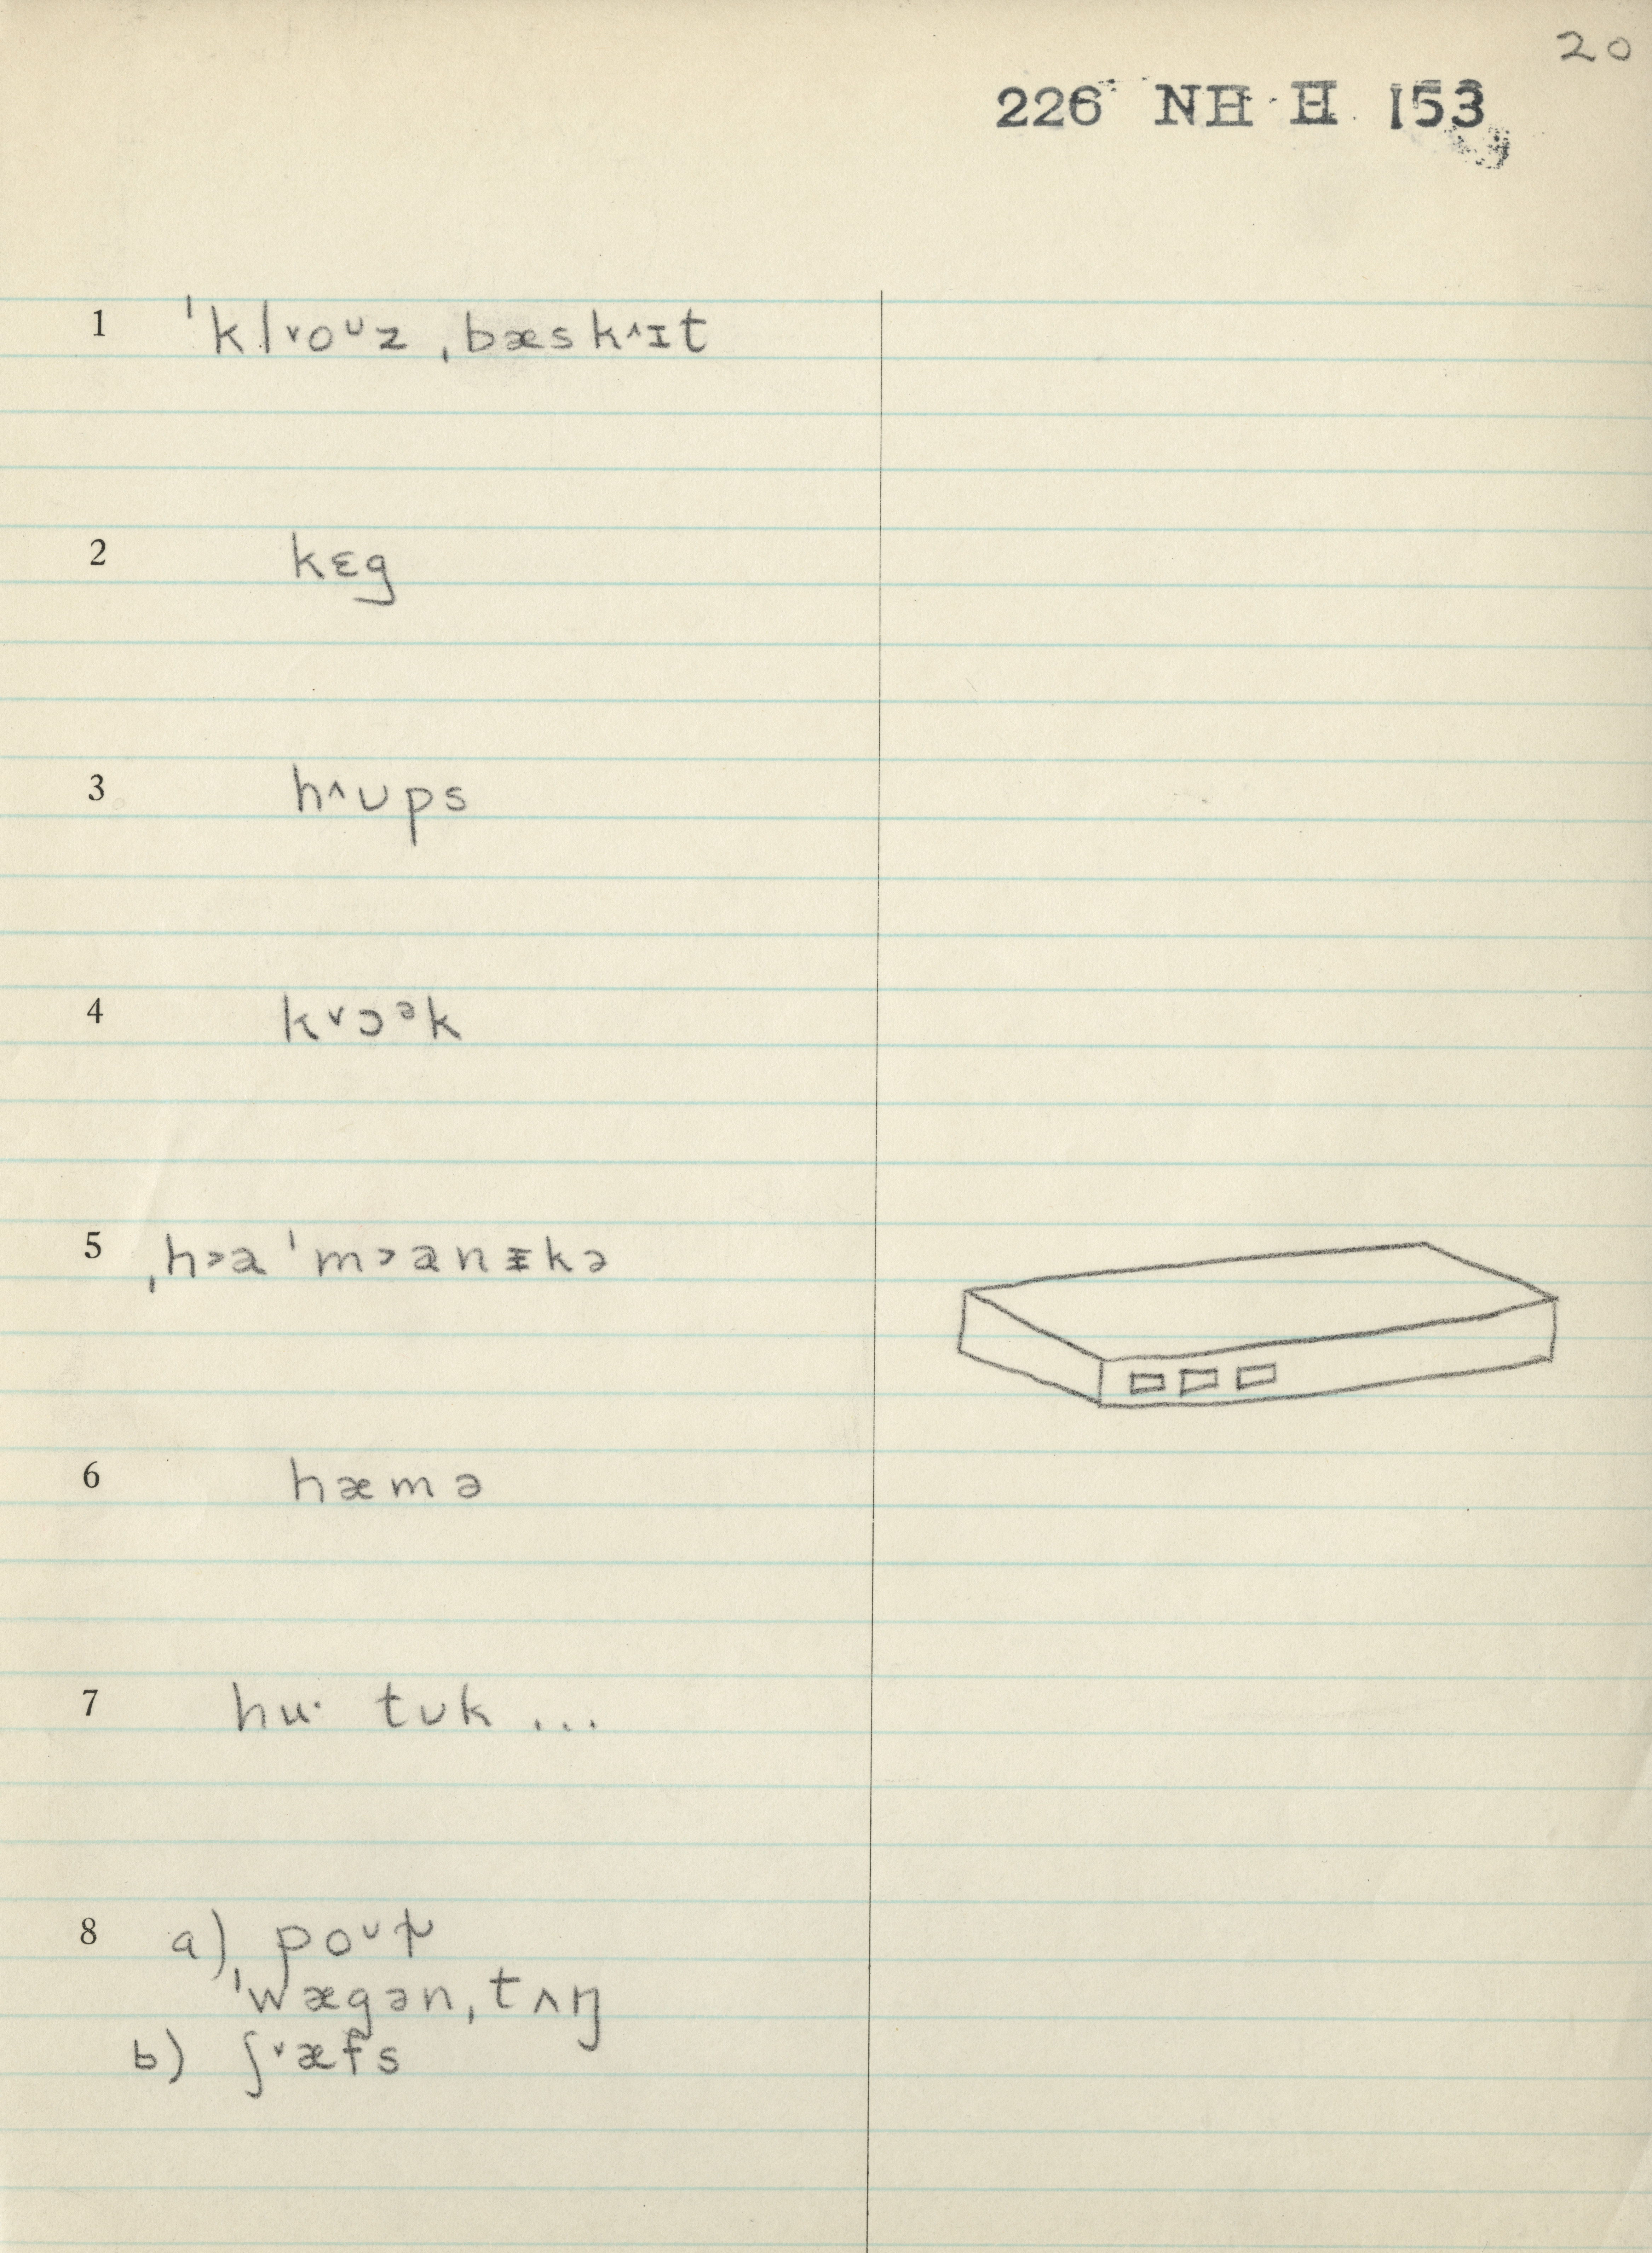 20
226 NH H 153
1 ˈkl˅oᶷz ˌbæsk^ɪt
2 kɛg
3 h^ʊps
4 k˅ɔᵊk
5 ˌh˃aˈm˃anɪ̵kə
6 hæmə
7 hu· tʊk ...
8 a) poᶷɫ
ˈwægənˌtʌŋ
b) ʃ˅æfs